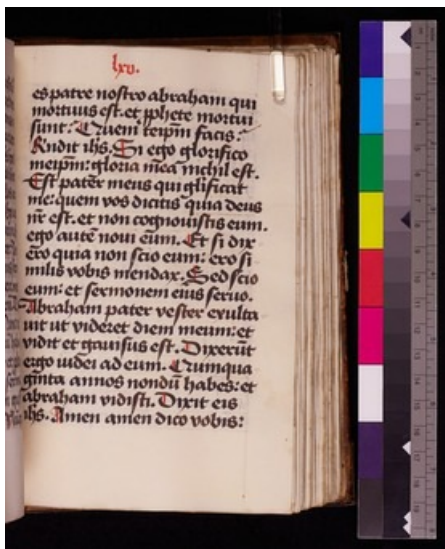 lxv.
es patre nostro abraham qui
mortuus est. et pphete mortui
sunt: Quem teipm facis:
Rndit ihs. Si ego glorifico
meipm: gloria mea nichil est.
Est pater meus qui glificat
me: quem vos dicitis quia deus
nr est. et non cognouistis eum.
ego autē noui eum. Et si dix
ero quia non scio eum: ero si
milis vobis mendax. Sed scio
eum: et sermonem eius seruo.
Abraham pater vester exulta
uit ut videret diem meum: et
vidit et gauisus est. Dixerūt
ergo iudei ad eum. Quinqua
ginta annos nondū habes: et
abraham vidisti. Dixit eis
ihs. Amen amen dico vobis: